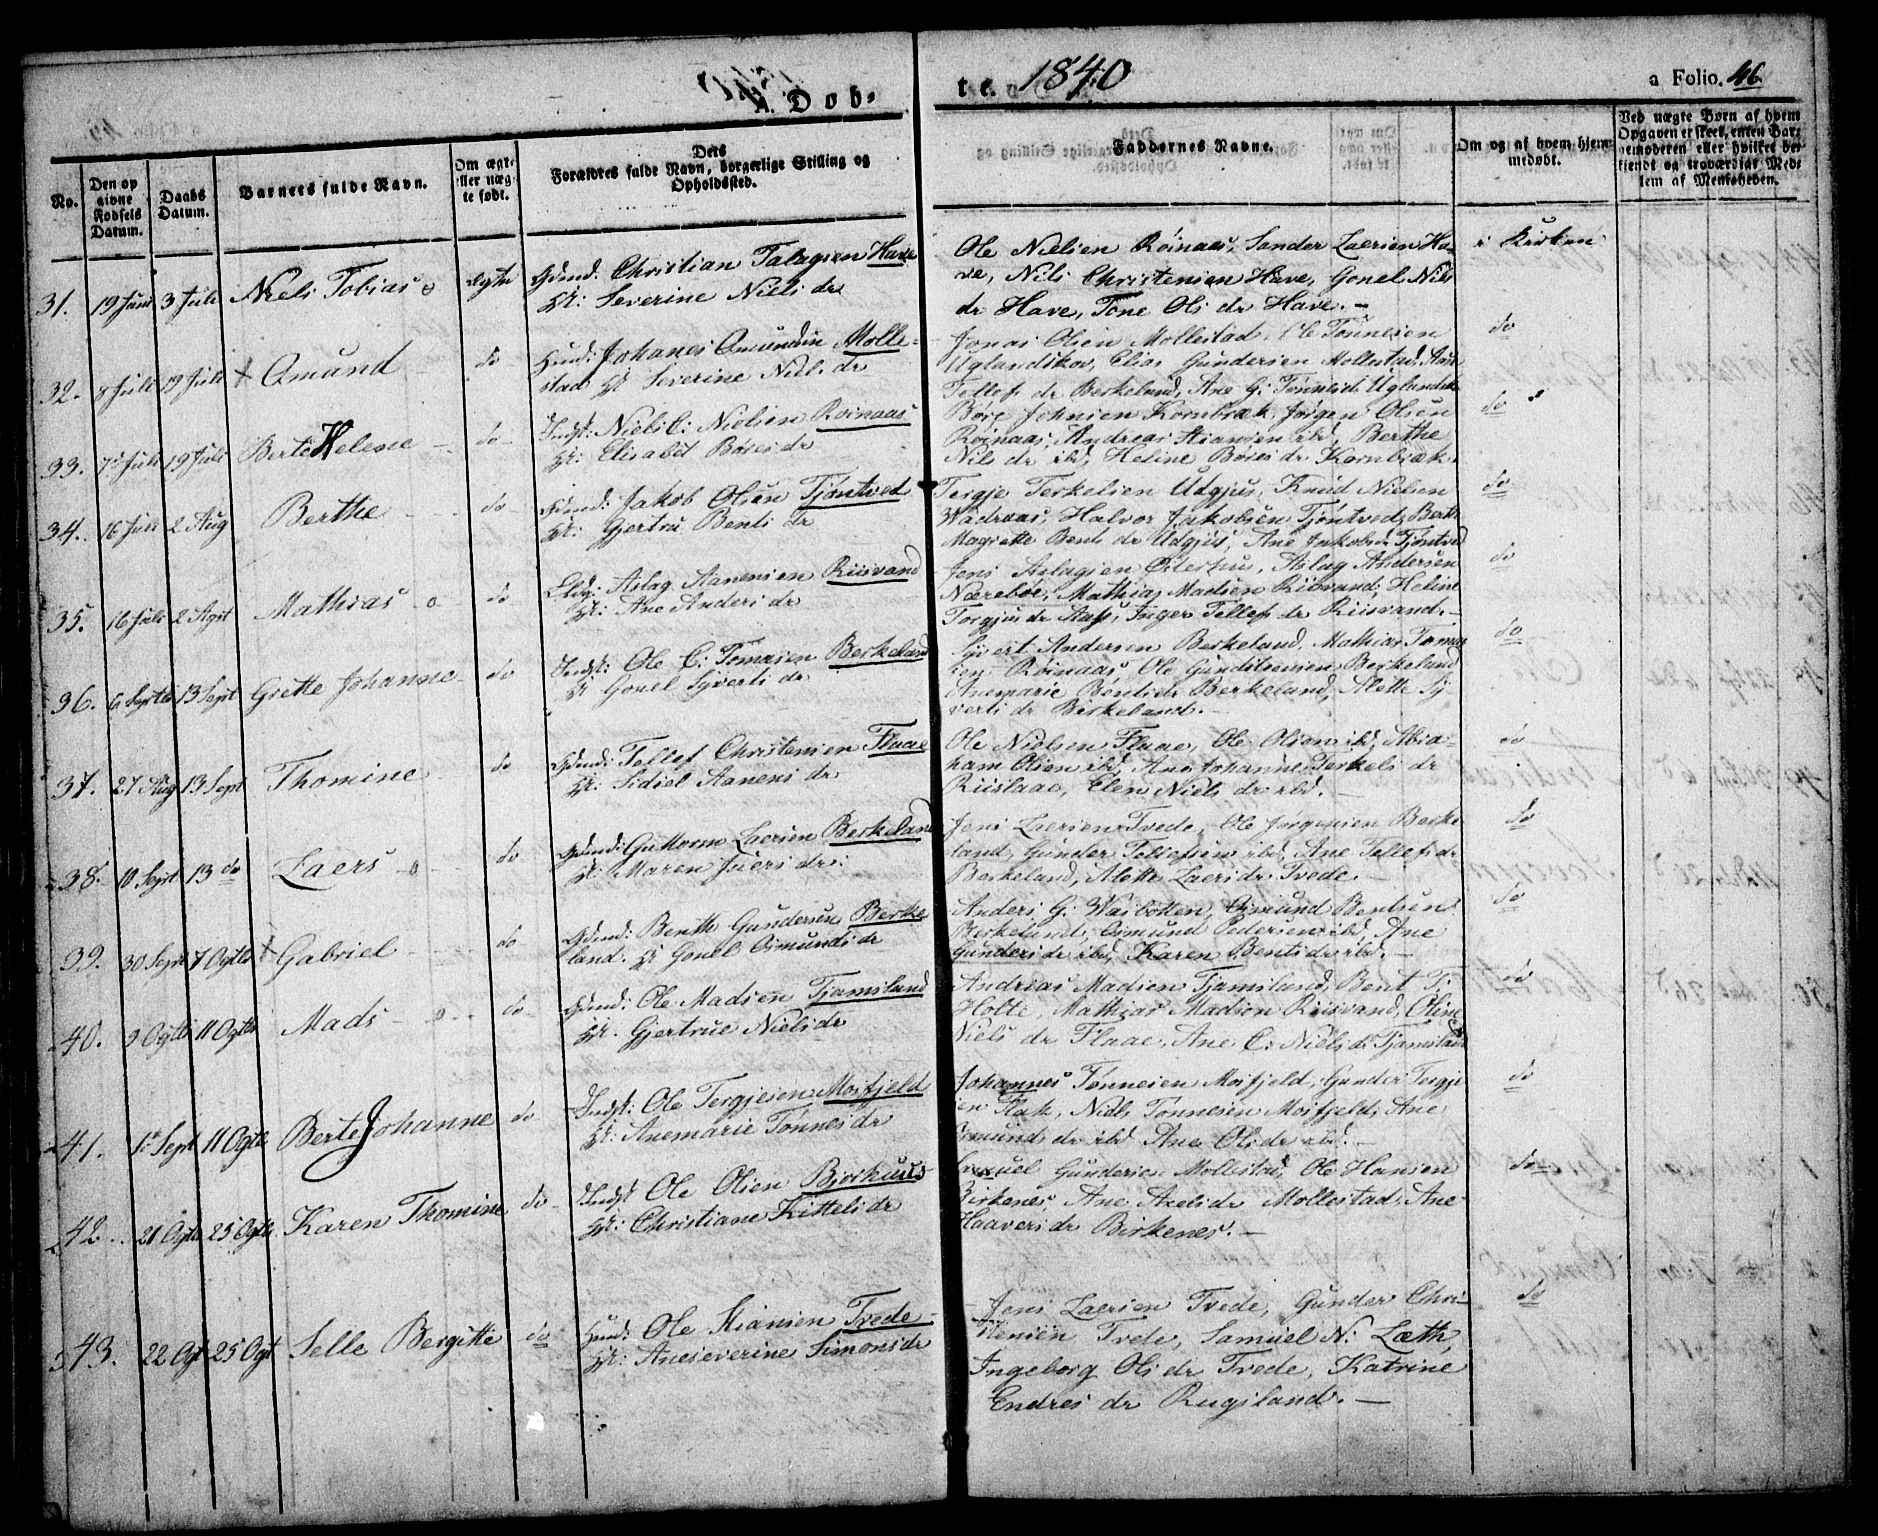 Døb-
te. 1840
a Folio. 46.
No.
Den op
givne
Fødsels
Datum.
Daabs
Datum.
Barnets fulde Navn.
Om ægte
eller uæg-
te født.
Dets
Forældres fulde Navn, borgerlige Stilling og
Opholdssted.
Faddernes Navne.
Om og af hvem hjem-
medøbt.
Ved uægte Børn af hvem
Opgaven er skeet, enten Bar-
nemoderen eller hvilket be-
kjendt og troværdigt Med-
lem af Menigheden.
31. 19 Juni 3 Juli Niels Tobias ægte
Gdmd: Christian Talagsen Have
H: Severine Niels dr
Ole Nielsen Röinaas, Sander Laersen Ha-
ve, Nils Christensen Have, Gonel Niels
dr Have, Tone Ols dr Have. —
i Kirken
32. 8 Juli 19 Juli + Omund do
Huusmd: Johanes Omundsen Molle-
stad H: Severine Niels dr
Jonas Olsen Mollestad, Ole Tönnesen
Uglandskov, Elias Gundersen Mollestad, Aase
Tellefs dr Berkeland, Ane G. Tønnesdr Uglandsk
do
33. 7 Juli 19 Juli Berte Helene do
Indst: Niels C: Nielsen Röinaas
H: Elisabet Börs dr
Börje Johnsen Kornbræk, Jörgen Olsen
Röinaas, Andreas Stiansen ibd, Berthe
Nils dr ibd, Heline Börs dr Kornbræk.
do
34. 16 Juli 2 Aug Berthe do
Gdmd: Jakob Olsen Tjöntved
H: Gjertru Bents dr
Tergje Terkelsen Udgjus, Knud Nielsen
Wadraas, Halvor Jakobsen Tjöntved, Berthe
Magrette Bents dr Udgjus, Ane Jakobsdr Tjöntved
do
35. 16 Juli 2 Agst Mathias do
Aslag Aanensen Riisvand
H: Ane Anders dr
Jens Aslagsen Oterhus, Aslag Andersen
Næreböe, Mathias Madsen Riisvand, Heline
Torgjus dr Aas, Inger Tellefs dr Riisvand. —
do
36. 6 Septb 13 Sept Grette Johanne do
Indst: Ole C: Tomasen Berkeland
H: Gonel Syverts dr
Syvert Andersen Berkeland, Mathias Tomas
sen Röinaas, Ole Gunditsensen Berkeland
Anemarie Bentsdr Berkeland, Alette Sy-
verts dr Birkeland. —
do
37. 27 Aug 13 Sept Thomine do
Gdmd: Tellef Christensen Flaae
H: Sidsel Aanens dr
Ole Nielsen Flaae, Ole Olsen ibd, Abra-
ham Olsen ibd, Ane Johanne Terkels dr
Riislaae, Elen Niels dr ibd. —
do
38. 10 Sept 13 do Laers do
Gdmd: Guttorm Laersen Berkeland
H: Maren Juers dr:
Jens Laersen Tvede, Ole Jorgensen Berke-
land, Gunder Tellefsen ibd, Ane Tellefs dr
Berkeland, Alette Laers dr Tvede. —
do
39. 30 Sept 7 Ogtb + Gabriel do
Gdmd: Benth Gundersen Berke-
land. H: Gonel Osmunds dr
Anders G: Wasbotten, Osmund Bentsen
Berkeland, Osmund Pedersen ibd, Ane
Gunders dr ibd, Karen Bents dr ibd. —
do
40. 9 Ogtb 11 Ogtb Mads do
Gdmd: Ole Madsen Tjamsland
H: Gjertrue Niels dr
Andreas Madsen Tjamsland, Bent T:
Holte, Mathias Madsen Riisvand, Oline
Niels dr Flaae, Ane C: Niels dr Tjamsland
do
41. 1 Sept 11 Ogtb Berte Johanne do
Indst: Ole Tergjesen Mosfjeld
H: Anemarie Tönnes dr
Johannes Tönnesen Mosfjeld, Gunder Tergje
sen Flak, Niels Tönnesen Mosfjeld, Ane
Osmunds dr ibd Ane Ols dr ibd. —
do
42. 21 Ogtb 25 Ogtb Karen Thomine do
Indst Ole Olsen Bjorkuus
H: Christiane Kittels dr
Samuel Gundersen Mollestad, Ole Hansen
Birkenes, Ane Axels dr Mollestad, Ane
Haavers dr Birkenes. —
do
43. 22 Ogt 25 Ogt Selle Bergitte do
Huusmd: Ole Stiansen Tvede
H: Aneseverine Simons dr
Jens Laersen Tvede, Gunder Chri-
stensen Tvede, Samuel N: Læth,
Ingeborg Ols dr Tvede, Katrine
Endres dr Rugsland. —
do